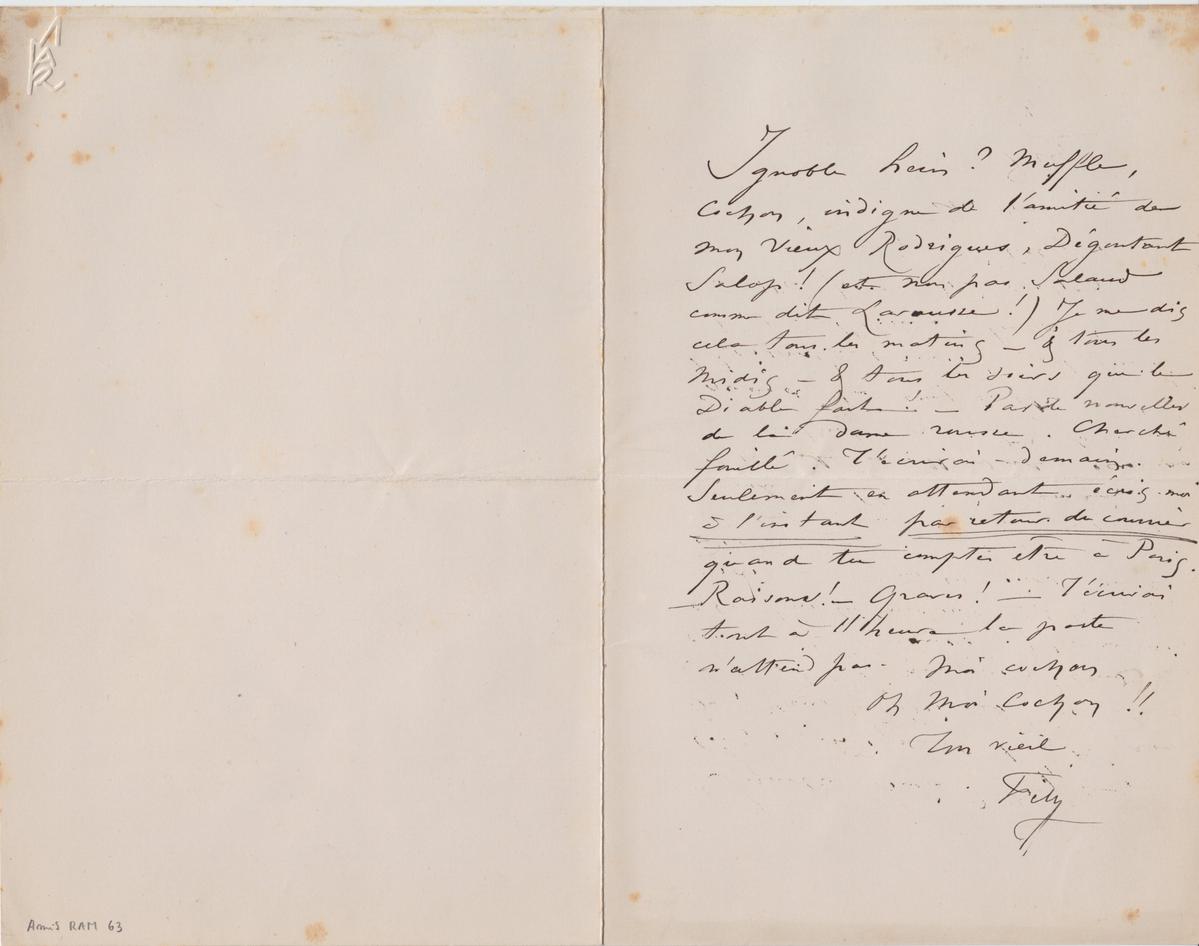 Ignoble hein ? Muffle,
Cochon, indigne de l'amitié de
mon vieux Rodrigues, Dégoutant
Salop ! (et non pas Salaud
comme dit Larousse !) Je me dis
cela tous les matins — & tous les
midis — & tous les soirs que le
Diable fait ! — Pas de nouvelles
de la dame rousse. Cherché
fouillé. T'écrirai demain.
Seulement en attendant écris-moi
à l'instant par retour du courrier
quand tu comptes être à Paris.
— Raisons ! — Graves ! — T'écrirai
tout à l'heure la poste
n'attend pas. Moi cochon
Oh Moi Cochon !!
Ton vieil
Fély
Amis RAM 63